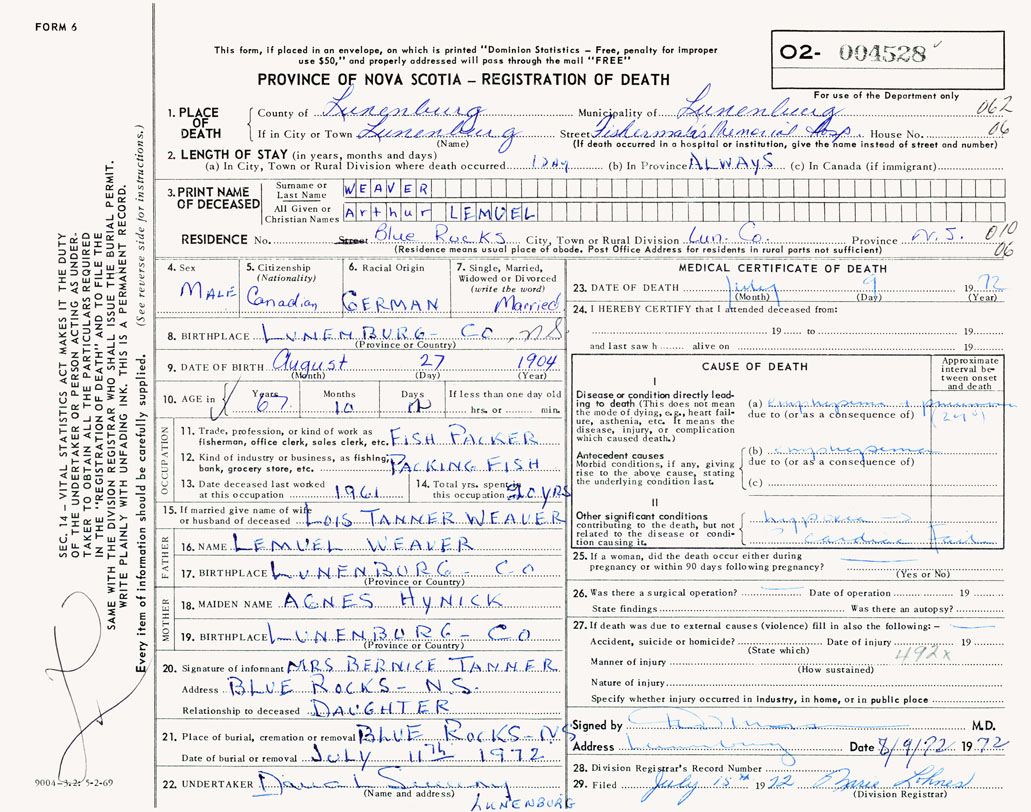 FORM 6
This form, if placed in an envelope, on which is printed "Dominion Statistics – Free, penalty for improper
use $50," and properly addressed will pass through the mail "FREE"
O2- 004528
PROVINCE OF NOVA SCOTIA – REGISTRATION OF DEATH
For use of the Department only
1. PLACE OF DEATH
County of Lunenburg Municipality of Lunenburg 062
If in City or Town Lunenburg Street Fisherman's Memorial Hosp. House No. 06
(Name) (If death occurred in a hospital or institution, give the name instead of street and number)
2. LENGTH OF STAY (in years, months and days)
(a) In City, Town or Rural Division where death occurred 1 DAY (b) In Province ALWAYS (c) In Canada (if immigrant)
3. PRINT NAME OF DECEASED
Surname or Last Name WEAVER
All Given or Christian Names Arthur LEMUEL
RESIDENCE No. Street Blue Rocks City, Town or Rural Division Lun. Co. Province N.S. 010
(Residence means usual place of abode. Post Office Address for residents in rural parts not sufficient) 06
4. Sex MALE
5. Citizenship (Nationality) Canadian
6. Racial Origin GERMAN
7. Single, Married, Widowed or Divorced (write the word) Married
8. BIRTHPLACE LUNENBURG - CO NS
(Province or Country)
9. DATE OF BIRTH August 27 1904
(Month) (Day) (Year)
10. AGE in Years 67 Months 10 Days If less than one day old hrs. or min.
OCCUPATION
11. Trade, profession, or kind of work as
fisherman, office clerk, sales clerk, etc. FISH PACKER
12. Kind of industry or business, as fishing,
bank, grocery store, etc. PACKING FISH
13. Date deceased last worked
at this occupation 1961
14. Total yrs. spent in
this occupation 20 YRS
15. If married give name of wife
or husband of deceased LOIS TANNER WEAVER
FATHER
16. NAME LEMUEL WEAVER
17. BIRTHPLACE LUNENBURG - CO
(Province or Country)
MOTHER
18. MAIDEN NAME AGNES HYNICK
19. BIRTHPLACE LUNENBURG - CO
(Province or Country)
20. Signature of informant MRS BERNICE TANNER
Address BLUE ROCKS - N.S.
Relationship to deceased DAUGHTER
21. Place of burial, cremation or removal BLUE ROCKS - NS
Date of burial or removal JULY 11th 1972
22. UNDERTAKER
(Name and address)
LUNENBURG
MEDICAL CERTIFICATE OF DEATH
23. DATE OF DEATH July 9 1972
(Month) (Day) (Year)
24. I HEREBY CERTIFY that I attended deceased from:
19 to 19
and last saw h alive on 19
CAUSE OF DEATH
Approximate interval between onset and death
I
Disease or condition directly leading to death (This does not mean
the mode of dying, e.g., heart failure, asthenia, etc. It means the
disease, injury, or complication
which caused death.)
(a)
due to (or as a consequence of)
Antecedent causes
Morbid conditions, if any, giving
rise to the above cause, stating
the underlying condition last.
(b) emphysema
due to (or as a consequence of)
(c)
II
Other significant conditions
contributing to the death, but not
related to the disease or condition causing it.
hypoxia →
Cardiac Fail
25. If a woman, did the death occur either during
pregnancy or within 90 days following pregnancy?
(Yes or No)
26. Was there a surgical operation? Date of operation 19
State findings Was there an autopsy?
27. If death was due to external causes (violence) fill in also the following: –
Accident, suicide or homicide? Date of injury 19
(State which) 492x
Manner of injury
(How sustained)
Nature of injury
Specify whether injury occurred in industry, in home, or in public place
Signed by M.D.
Address Lunenburg Date 7/9/72 1972
28. Division Registrar's Record Number
29. Filed July 15th 1972 Marie Lohnes
(Division Registrar)
SEC. 14 – VITAL STATISTICS ACT MAKES IT THE DUTY
OF THE UNDERTAKER OR PERSON ACTING AS UNDERTAKER TO OBTAIN ALL THE PARTICULARS REQUIRED
IN THE "REGISTRATION OF DEATH" AND TO FILE THE
SAME WITH THE DIVISION REGISTRAR WHO SHALL ISSUE THE BURIAL PERMIT.
WRITE PLAINLY WITH UNFADING INK. THIS IS A PERMANENT RECORD.
Every item of information should be carefully supplied. (See reverse side for instructions.)
9004-3.2: 5-2-69